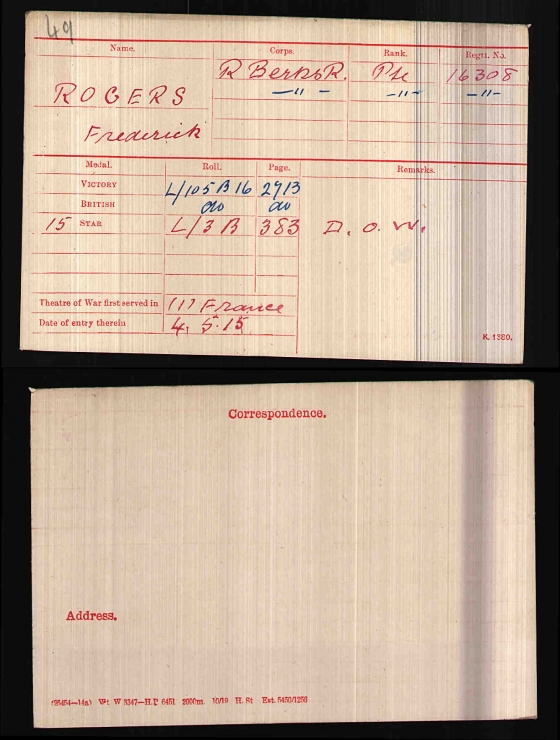 49
Name. Corps. Rank. Regtl. No.
R Berks R. Pte 16308
ROGERS —"— —"— —"—
Frederick
Medal. Roll. Page. Remarks.
VICTORY L/105 B 16 2913
BRITISH do do
15 STAR L/3 B 383 D. o. W.
Theatre of War first served in (1) France
Date of entry therein 4. 5. 15
K. 1380.
Correspondence.
Address.
(25454—14a) Wt W 3347—H.P. 6451 2000m. 10/19 H. St Est. 5450/1256